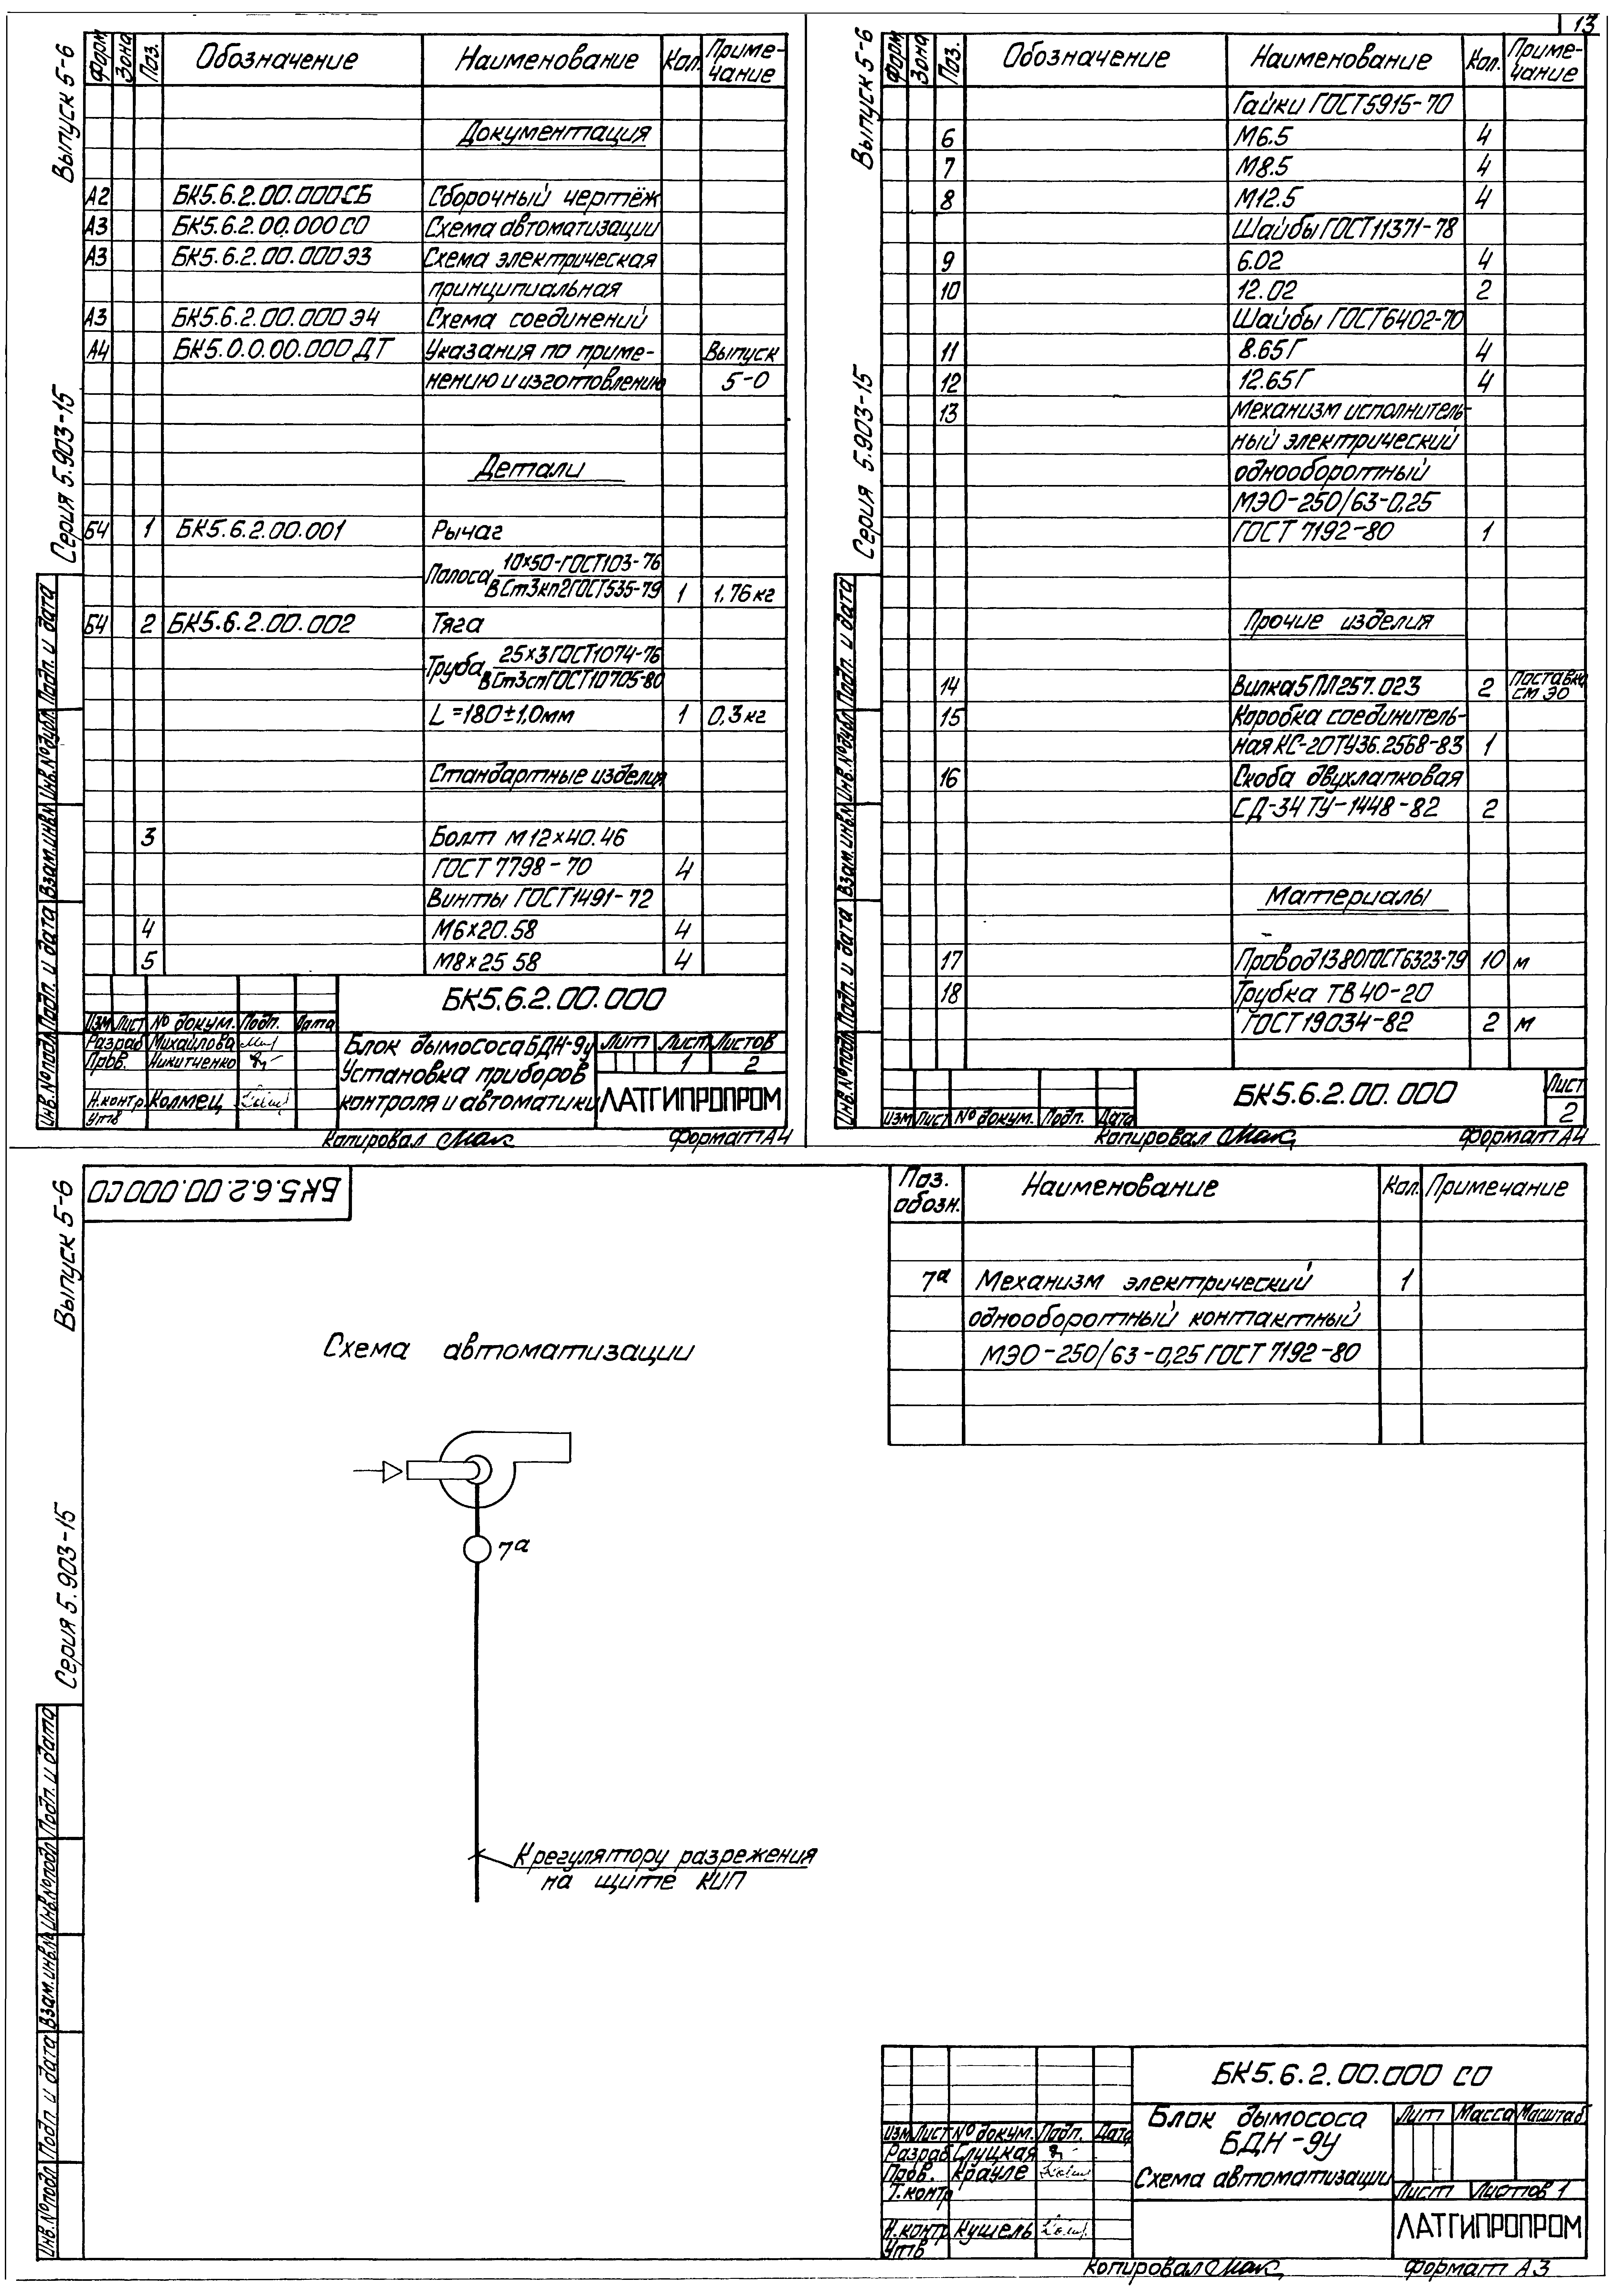 13
Выпуск 5-6
Серия 5.903-15
Форм. Зона Поз. Обозначение Наименование Кол. Приме-
чание
Документация
А2 БК5.6.2.00.000СБ Сборочный чертёж
А3 БК5.6.2.00.000СО Схема автоматизации
А3 БК5.6.2.00.000Э3 Схема электрическая
принципиальная
А3 БК5.6.2.00.000Э4 Схема соединений
А4 БК5.0.0.00.000ДТ Указания по приме- Выпуск
нению и изготовлению 5-0
Детали
Б4 1 БК5.6.2.00.001 Рычаг
10×50-ГОСТ103-76
Полоса ВСт3кп2ГОСТ535-79 1 1,76кг
Б4 2 БК5.6.2.00.002 Тяга
25×3ГОСТ1074-76
Труба ВСт3спГОСТ10705-80
L=180±1,0мм 1 0,3кг
Стандартные изделия
3 Болт М12×40.46
ГОСТ 7798-70 4
Винты ГОСТ1491-72
4 М6×20.58 4
5 М8×25 58 4
БК5.6.2.00.000
Изм Лист № докум. Подп. Дата
Разраб Михайлова
Пров. Никитченко
Н.контр. Колмец
Утв
Блок дымососа БДН-9у
Установка приборов
контроля и автоматики
Лит Лист Листов
1 2
ЛАТГИПРОПРОМ
Инв.№подл Подп. и дата Взам.инв.№ Инв.№дубл. Подп. и дата
Копировал Формат А4
Выпуск 5-6
Серия 5.903-15
Форм Зона Поз. Обозначение Наименование Кол. Приме-
чание
Гайки ГОСТ5915-70
6 М6.5 4
7 М8.5 4
8 М12.5 4
Шайбы ГОСТ11371-78
9 6.02 4
10 12.02 2
Шайбы ГОСТ6402-70
11 8.65Г 4
12 12.65Г 4
13 Механизм исполнитель-
ный электрический
однооборотный
МЭО-250/63-0,25
ГОСТ 7192-80 1
Прочие изделия
14 Вилка5ПЛ257.023 2 Поставка
СМ ЭО
15 Коробка соединитель-
ная КС-20ТУ36.2568-83 1
16 Скоба двухлапковая
СД-34 ТУ-1448-82 2
Материалы
17 Провод1380ГОСТ6323-79 10 м
18 Трубка ТВ40-20
ГОСТ19034-82 2 м
Изм Лист № докум. Подп. Дата
БК5.6.2.00.000
Лист
2
Инв.№подл Подп. и дата Взам.инв.№ Инв.№дубл. Подп. и дата
Копировал Формат А4
Выпуск 5-6
Серия 5.903-15
БК5.6.2.00.000СО
Поз.
обозн. Наименование Кол. Примечание
7а Механизм электрический 1
однооборотный контактный
МЭО-250/63-0,25 ГОСТ 7192-80
Схема автоматизации
7а
К регулятору разрежения
на щите КИП
БК5.6.2.00.000 СО
Изм Лист № докум. Подп. Дата
Разраб Слуцкая
Пров. Крауле
Т.контр
Н.контр Кушель
Утв
Блок дымососа
БДН-9у
Схема автоматизации
Лит Масса Масштаб
Лист Листов 1
ЛАТГИПРОПРОМ
Инв.№подл Подп. и дата Взам.инв.№ Инв.№подл Подп. и дата
Копировал Формат А3